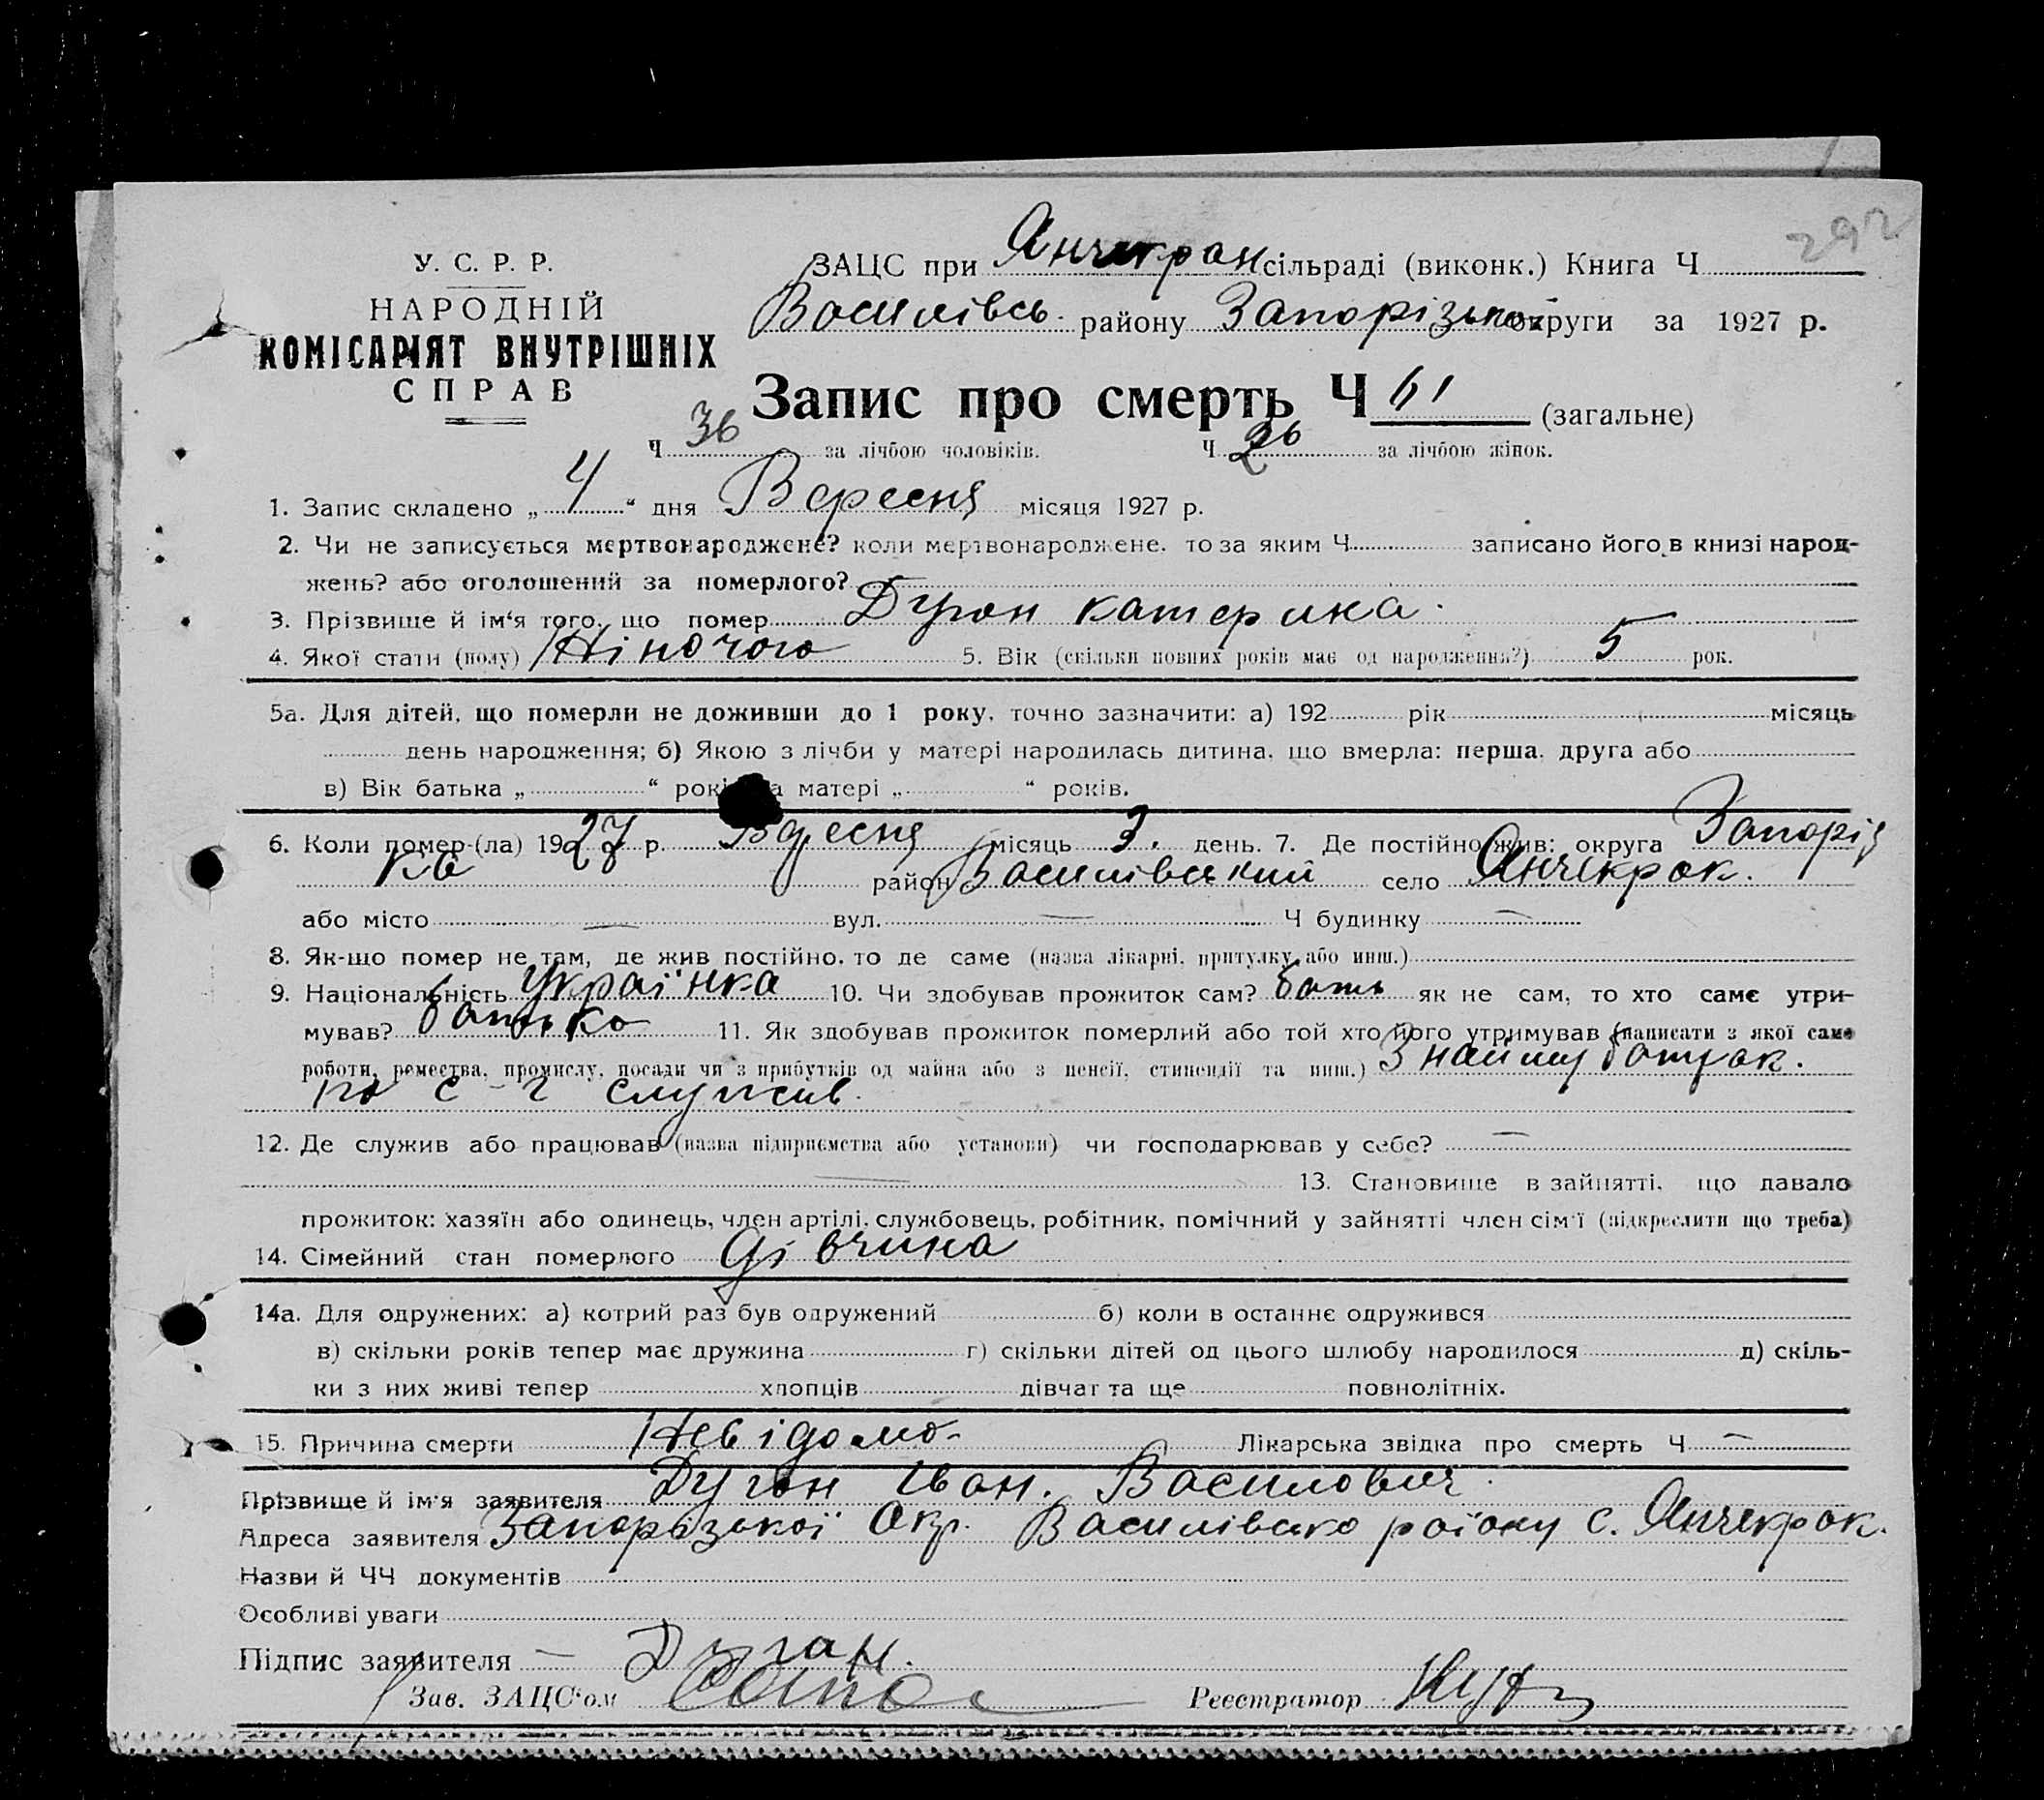 292
У. С. Р. Р.
НАРОДНІЙ
КОМІСАРІЯТ ВНУТРІШНІХ
СПРАВ
ЗАЦС при Янчекрак сільраді (виконк.) Книга Ч
Василівсь. району Запорізької округи за 1927 р.
Запис про смерть Ч 61 (загальне)
Ч 36 за лічбою чоловіків. Ч 26 за лічбою жінок.
1. Запис складено „ 4 “ дня Вересня місяця 1927 р.
2. Чи не записується мертвонароджене? коли мертвонароджене, то за яким Ч записано його в книзі народ-
жень? або оголошений за померлого?
3. Прізвище й ім‘я того, що помер Дуган Катерина.
4. Якої стати (полу) Жіночого 5. Вік (скільки повних років має од народження?) 5 рок.
5а. Для дітей, що померли не доживши до 1 року, точно зазначити: а) 192 рік місяць
день народження; б) Якою з лічби у матері народилась дитина, що вмерла: перша, друга або
в) Вік батька „ “ рокі а матері „ “ років.
6. Коли помер-(ла) 1927 р. Вересня місяць 3. день. 7. Де постійно жив: округа Запоріз
ка район Василівський село Янчекрак.
або місто — вул. — Ч будинку —
8. Як-що помер не там, де жив постійно, то де саме (назва лікарні, притулку або инш.)
9. Національність Українка 10. Чи здобував прожиток сам? бать як не сам, то хто саме утри-
мував? батько 11. Як здобував прожиток померлий або той хто його утримував (написати з якої саме
роботи, ремества, промислу, посади чи з прибутків од майна або з пенсії, стипендії та инш.) З найму батрак.
по с-г служив.
12. Де служив або працював (назва підприємства або установи) чи господарював у себе? —
— 13. Становище в зайнятті, що давало
прожиток: хазяїн або одинець, член артілі, службовець, робітник, помічний у зайнятті член сім‘ї (підкреслити що треба)
14. Сімейний стан померлого Дівчина
14а. Для одружених: а) котрий раз був одружений б) коли в останнє одружився
в) скільки років тепер має дружина г) скільки дітей од цього шлюбу народилося д) скіль-
ки з них живі тепер хлопців дівчат та ще повнолітніх.
15. Причина смерти Невідомо- Лікарська звідка про смерть Ч —
Прізвище й ім‘я заявителя Дуган Іван. Василович.
Адреса заявителя Запорізької Окр. Василівсько району с. Янчекрак.
Назви й ЧЧ документів
Особливі уваги
Підпис заявителя — Дуган.
Зав. ЗАЦС‘ом Реєстратор